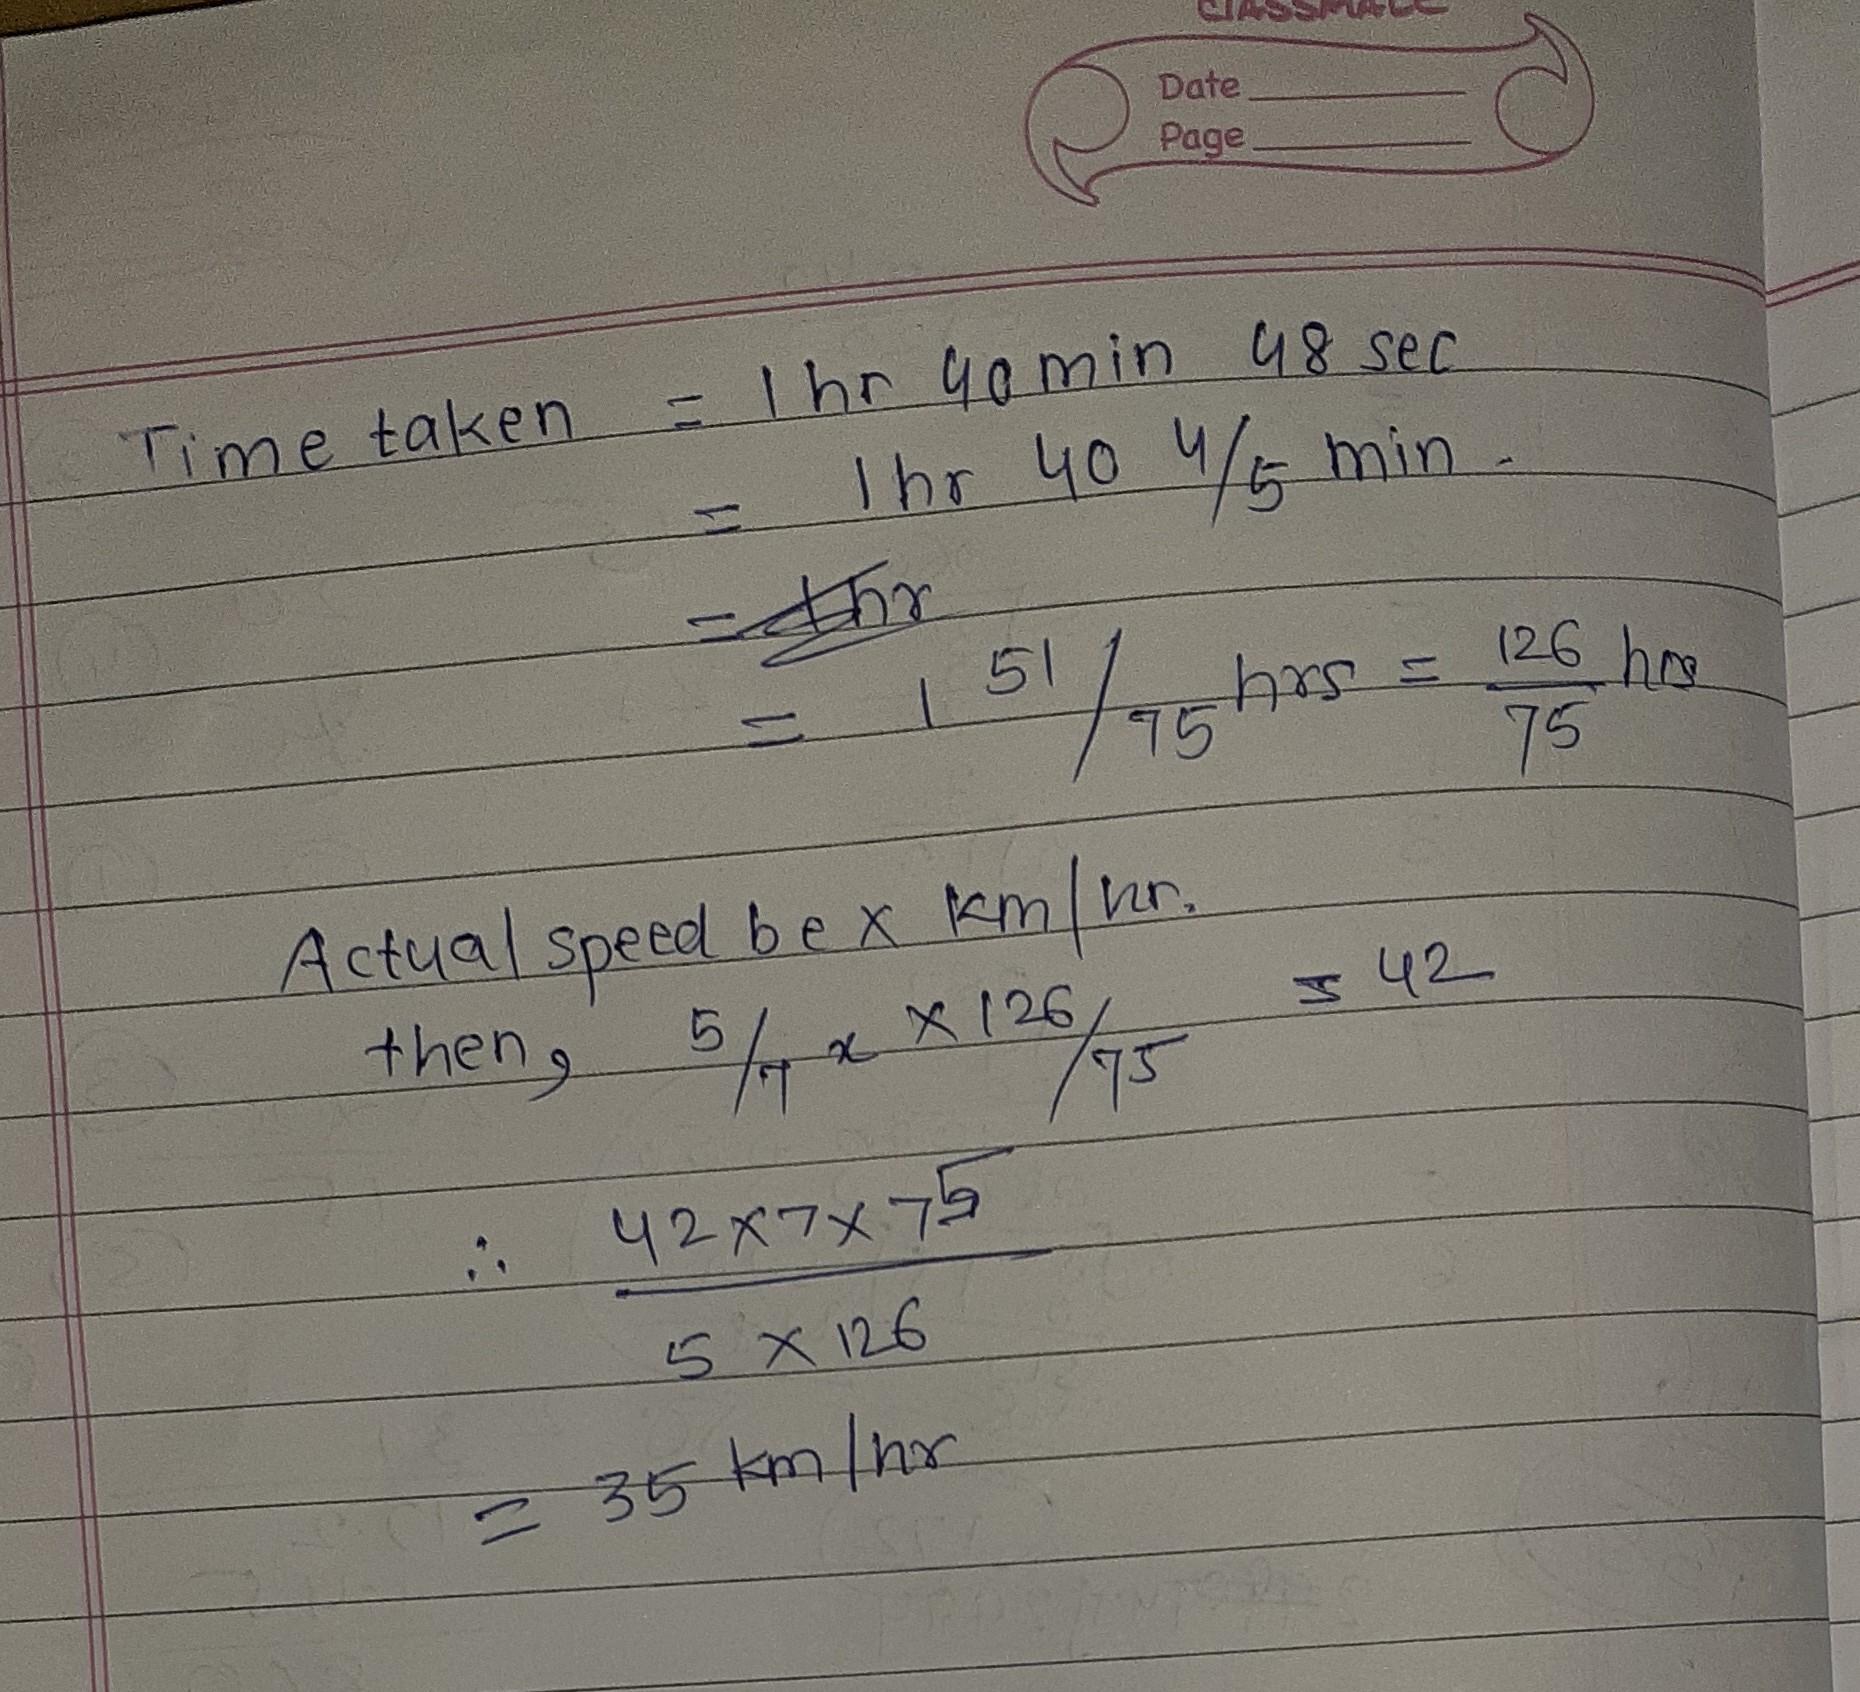 classmate
Date
Page
Time taken = 1 hr 40 min 48 sec
= 1 hr 40 4/5 min.
= 1 hr
= 1 51/75 hrs = 126/75 hrs
Actual speed be x km/hr.
then, 5/7 x × 126/75 = 42
∴ 42×7×75
5 × 126
= 35 km/hr